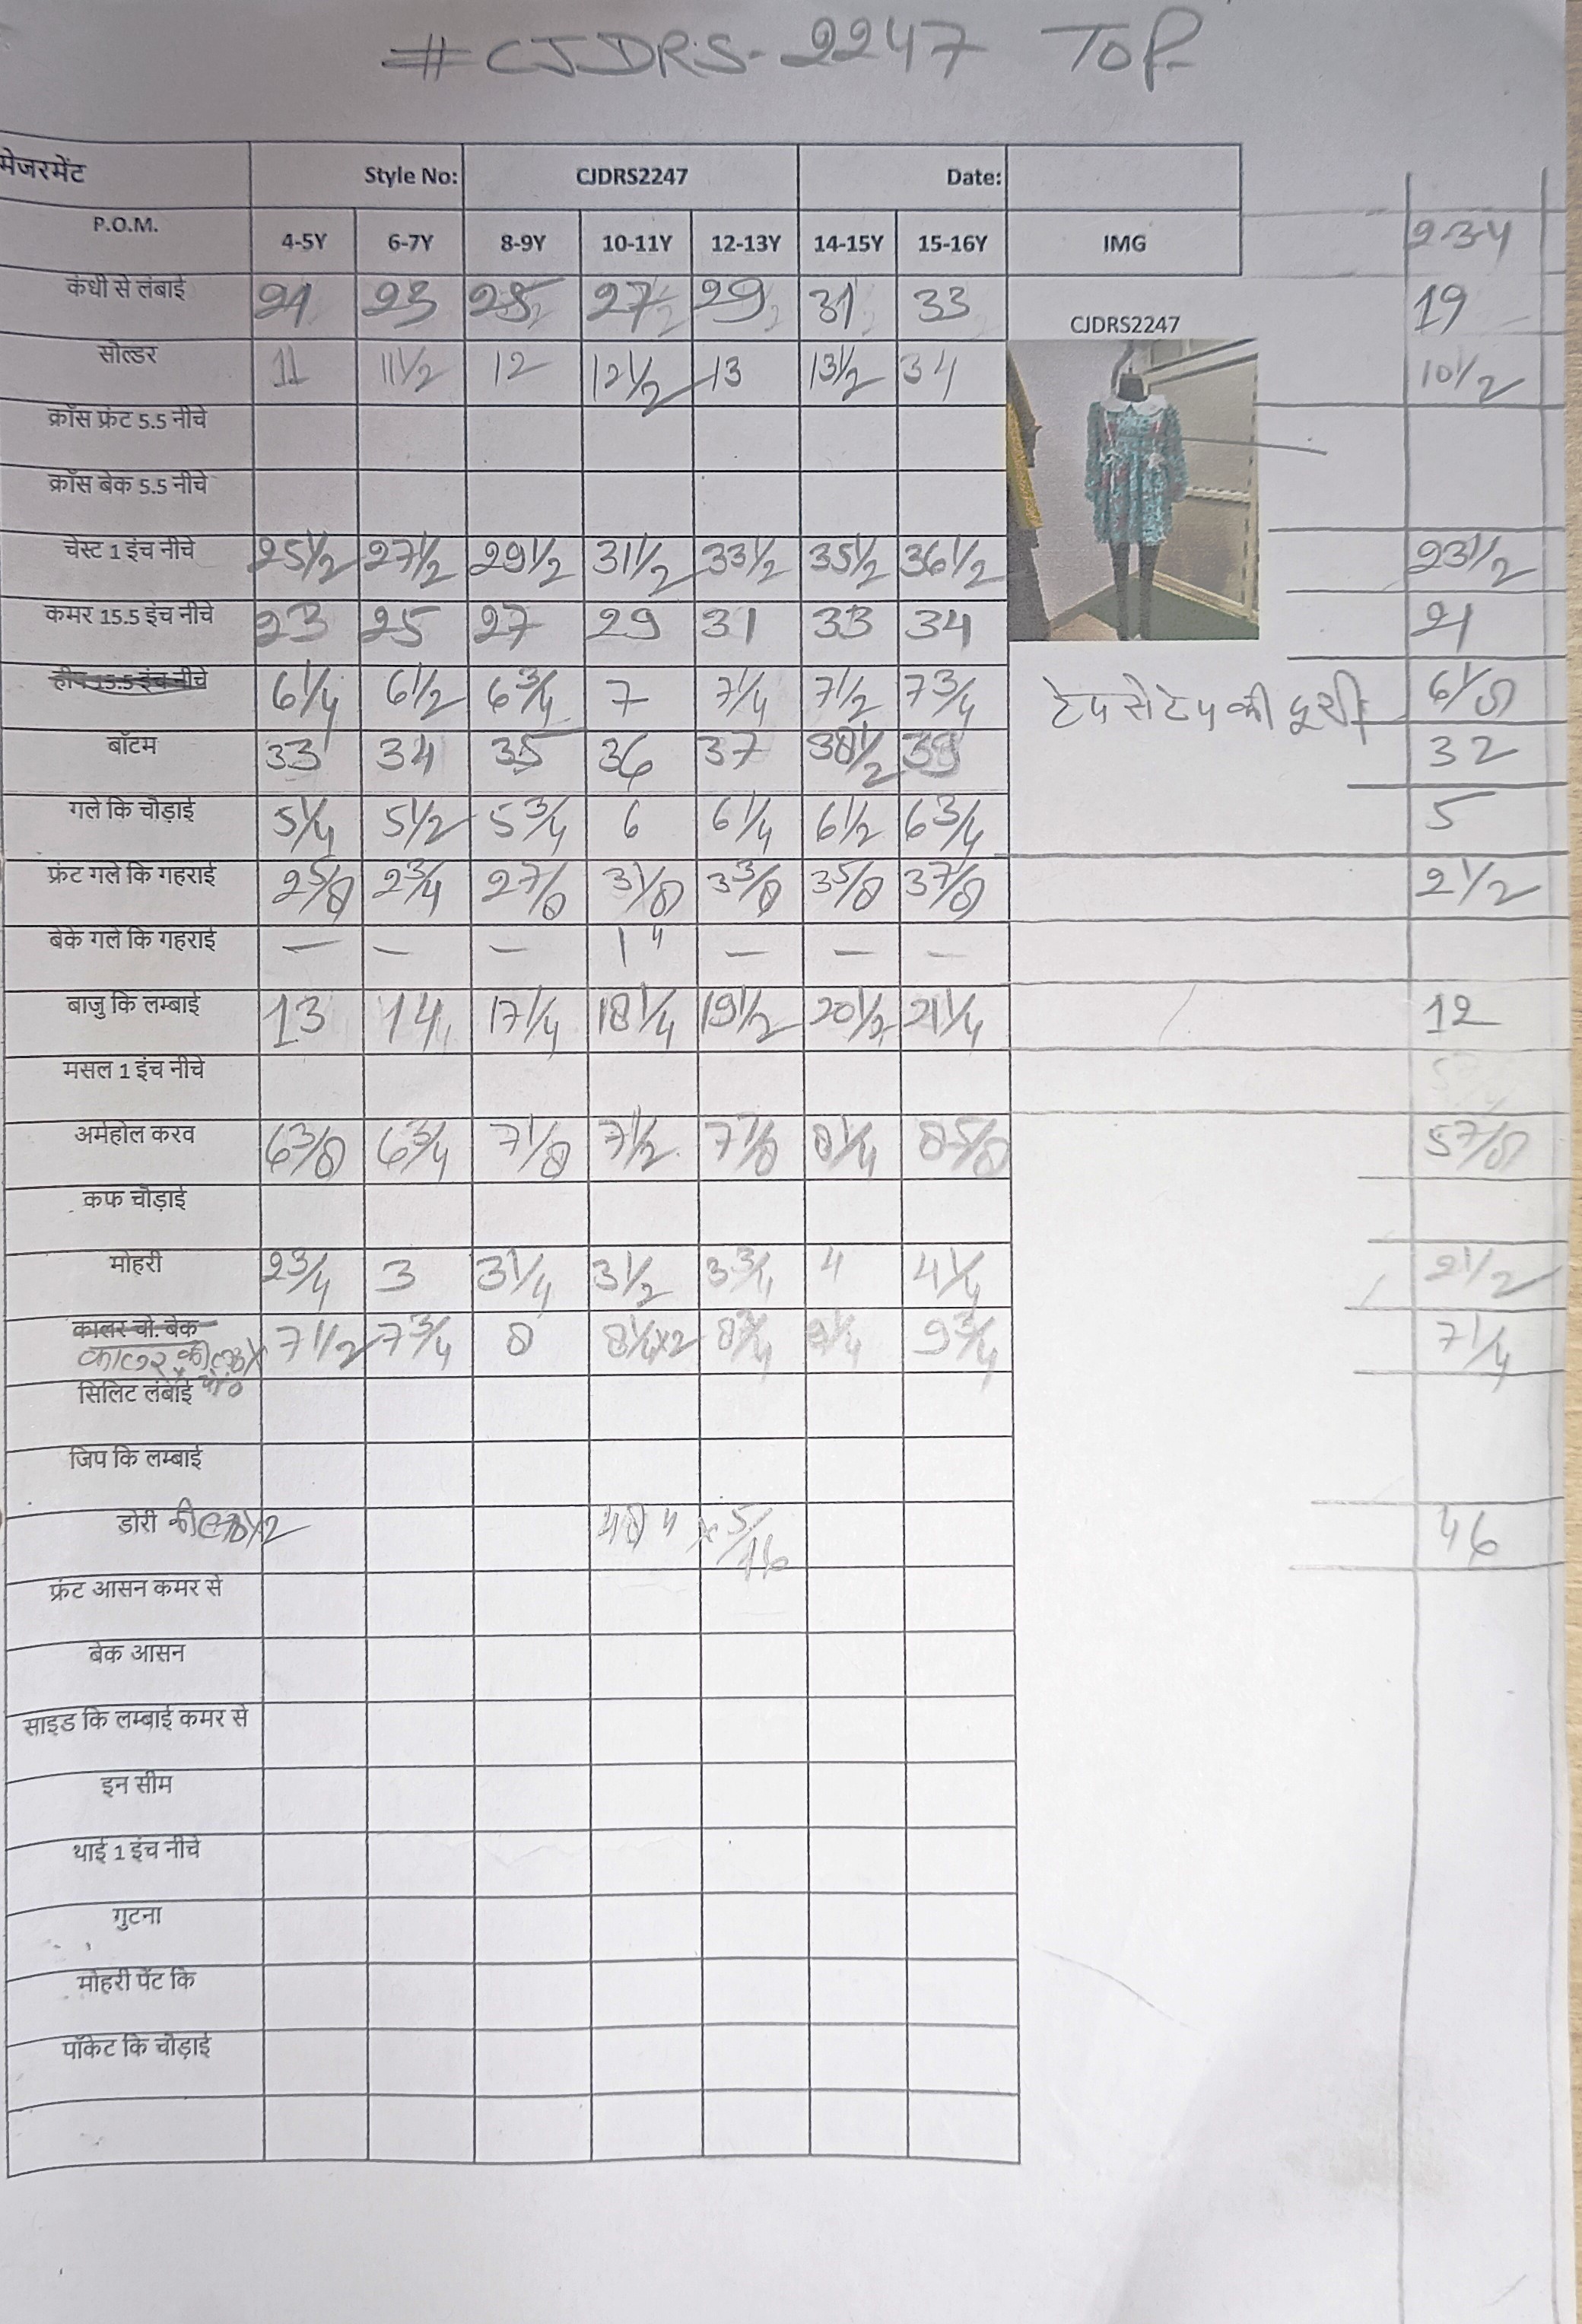 #CJDRS-2247 TOP
मेजरमेंट Style No: CJDRS2247 Date:
P.O.M. 4-5Y 6-7Y 8-9Y 10-11Y 12-13Y 14-15Y 15-16Y IMG 2-3-4
कंधी से लंबाई 21 23 25 27 29 31 33 19
CJDRS2247
सोल्डर 11 11 1/2 12 12 1/2 13 13 1/2 34 10 1/2
क्रॉस फ्रंट 5.5 नीचे
क्रॉस बेक 5.5 नीचे
चेस्ट 1 इंच नीचे 25 1/2 27 1/2 29 1/2 31 1/2 33 1/2 35 1/2 36 1/2 23 1/2
कमर 15.5 इंच नीचे 23 25 27 29 31 33 34 21
हीप 15.5 इंच नीचे 6 1/4 6 1/2 6 3/4 7 7 1/4 7 1/2 7 3/4 टेप से टेप की दूरी 6 1/8
बॉटम 33 34 35 36 37 38 1/2 39 32
गले कि चोड़ाई 5 1/4 5 1/2 5 3/4 6 6 1/4 6 1/2 6 3/4 5
फ्रंट गले कि गहराई 2 5/8 2 3/4 2 7/8 3 1/8 3 3/8 3 5/8 3 7/8 2 1/2
बेके गले कि गहराई — — — 1" — — —
बाजु कि लम्बाई 13 14 17 1/4 18 1/4 19 1/2 20 1/2 21 1/4 12
मसल 1 इंच नीचे
अर्महोल करव 6 3/8 6 3/4 7 1/8 7 1/2 7 1/8 8 1/4 8 5/8 5 7/8
कफ चोड़ाई
मोहरी 2 3/4 3 3 1/4 3 1/2 3 3/4 4 4 1/4 2 1/2
कालर चो. बेक 7 1/2 7 3/4 8 8 1/4x2 8 3/4 9 1/4 9 3/4 7 1/4
कालर की
सिलिट लंबाई
जिप कि लम्बाई
डोरी की 48" x 5/16 46
फ्रंट आसन कमर से
बेक आसन
साइड कि लम्बाई कमर से
इन सीम
थाई 1 इंच नीचे
गुटना
मोहरी पेंट कि
पॉकेट कि चोड़ाई